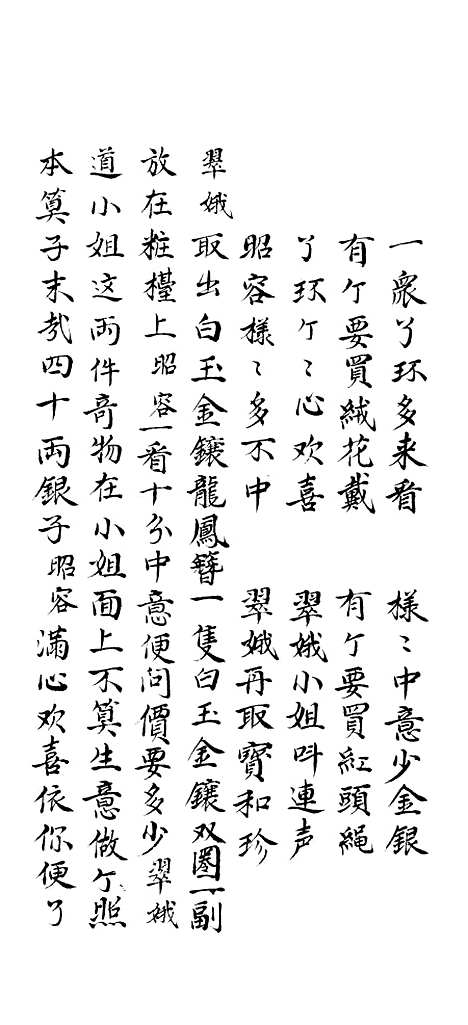 一眾丫环多来看 樣〻中意少金銀
有亇要買絨花戴 有亇要買紅頭繩
丫环亇〻心欢喜 翠娥小姐叫連声
昭容樣〻多不中 翠娥再取寳和珍
翠娥取出白玉金鑲龍鳳簪一隻白玉金鑲双圈一副
放在粧檯上昭容一看十分中意便问價要多少翠娥
道小姐这两件奇物在小姐面上不算生意做亇照
本算子末哉四十両銀子昭容滿心欢喜依你便了